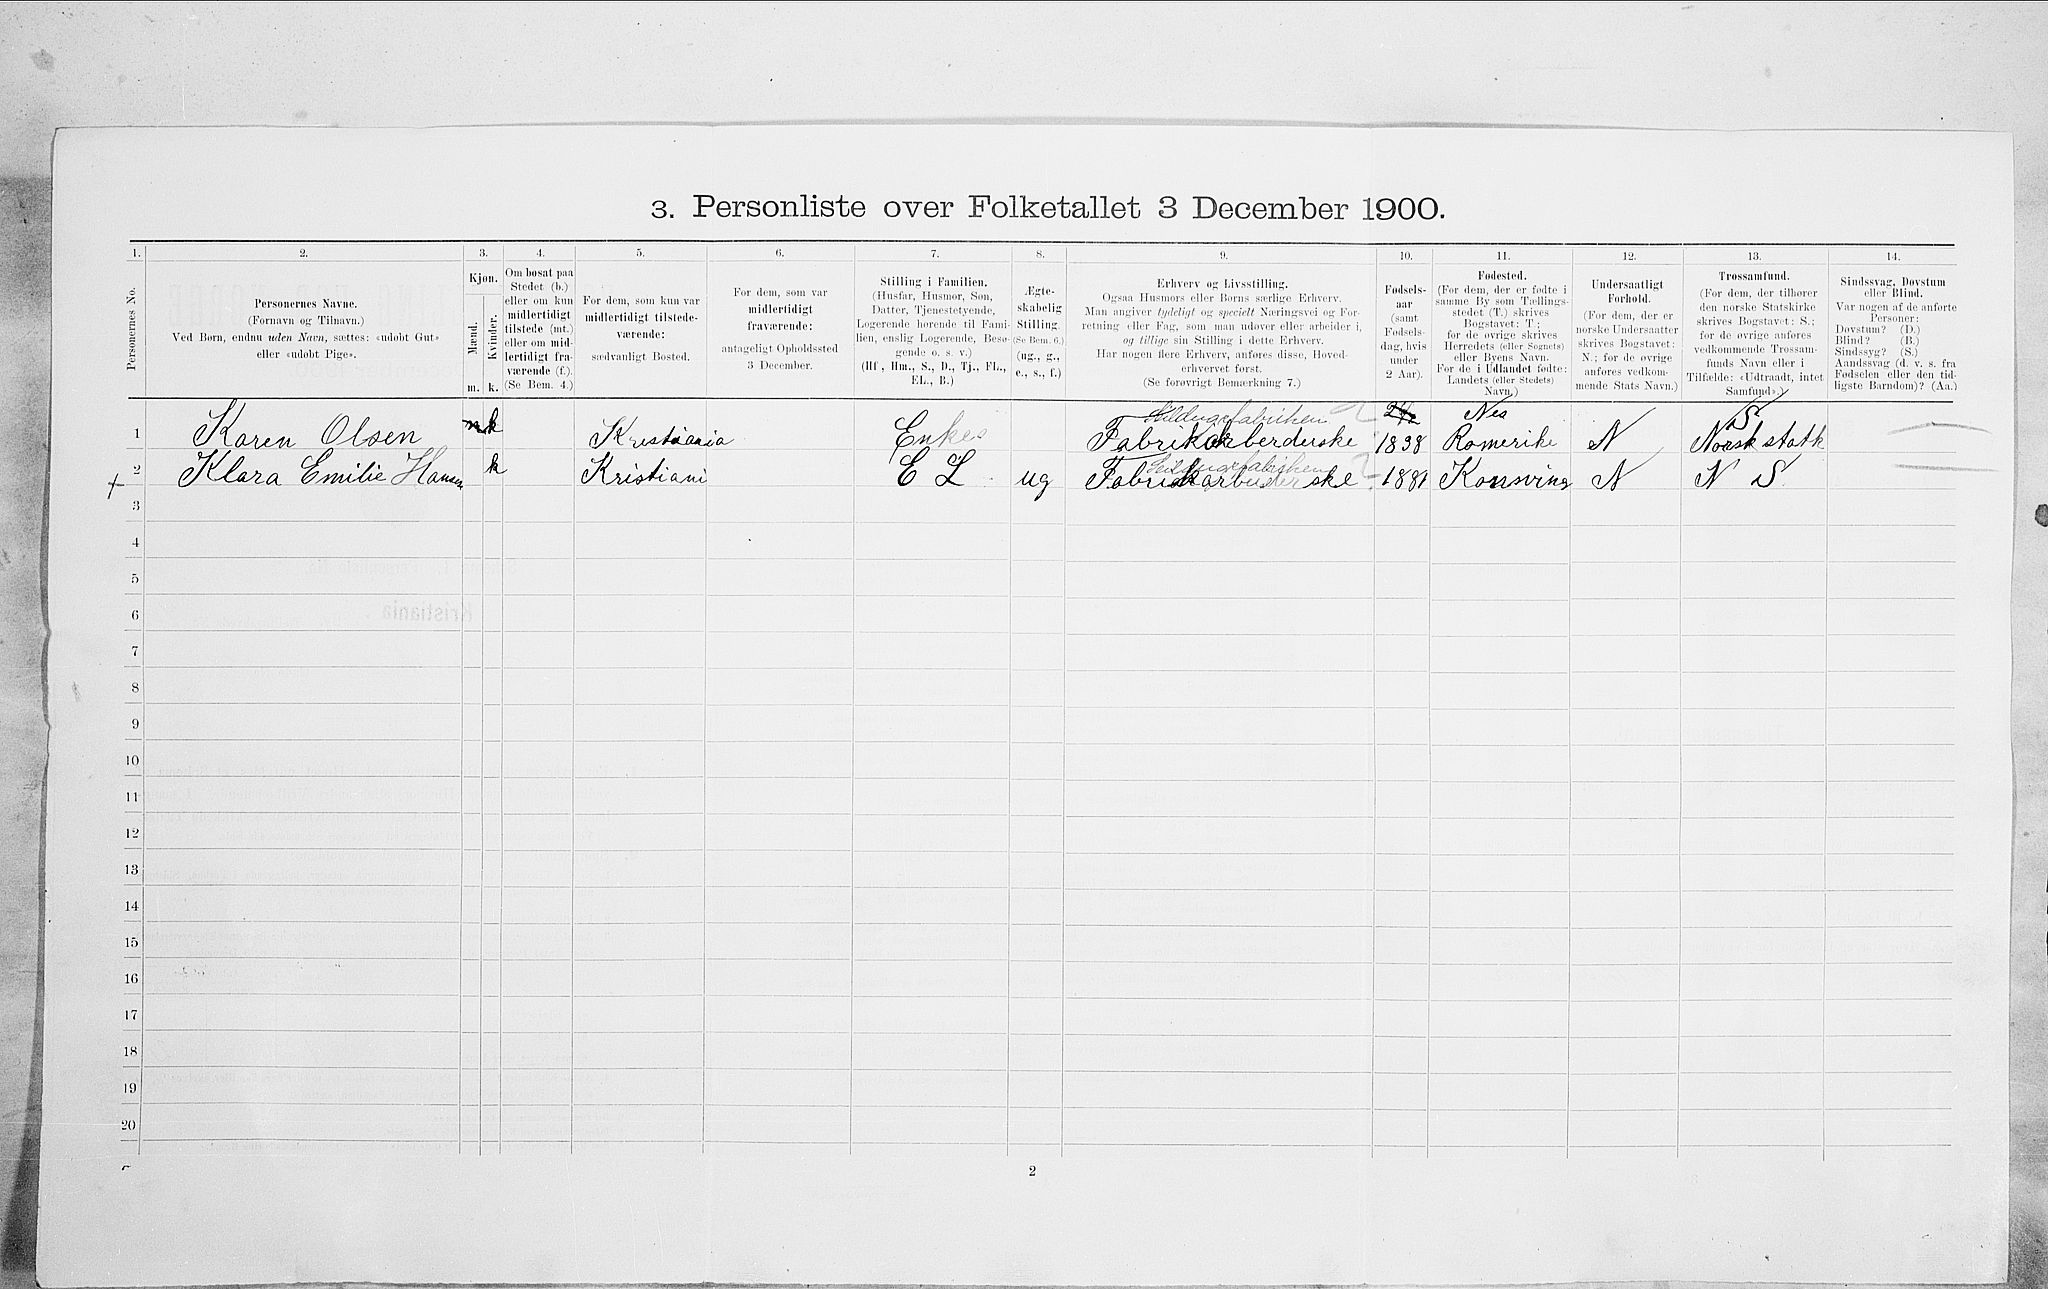 3. Personliste over Folketallet 3 December 1900.
1. 2. 3. 4. 5. 6. 7. 8. 9. 10. 11. 12. 13. 14.
Personernes No.
Personernes Navne.
(Fornavn og Tilnavn.)
Ved Børn, endnu uden Navn, sættes: «udøbt Gut»
eller «udøbt Pige».
Kjøn.
Mænd.
Kvinder.
m. k.
Om bosat paa
Stedet (b.)
eller om kun
midlertidigt
tilstede (mt.)
eller om mid-
lertidigt fra-
værende (f.).
(Se Bem. 4.)
For dem, som kun var
midlertidigt tilstede-
værende:
sædvanligt Bosted.
For dem, som var
midlertidigt
fraværende:
antageligt Opholdssted
3 December.
Stilling i Familien.
(Husfar, Husmor, Søn,
Datter, Tjenestetyende,
Logerende hørende til Fami-
lien, enslig Logerende, Besø-
gende o. s. v.)
(Hf., Hm., S., D., Tj., FL.,
EL., B.)
Ægte-
skabelig
Stilling.
(Se Bem. 6.)
(ug., g.,
e., s., f.)
Erhverv og Livsstilling.
Ogsaa Husmors eller Børns særlige Erhverv.
Man angiver tydeligt og specielt Næringsvei og For-
retning eller Fag, som man udøver eller arbeider i,
og tillige sin Stilling i dette Erhverv.
Har nogen flere Erhverv, anføres disse, Hoved-
erhvervet først.
(Se forøvrigt Bemerkning 7.)
Fødsels-
aar
(samt
Fødsels-
dag, hvis
under
2 Aar).
Fødested.
(For dem, der er fødte i
samme By som Tællings-
stedet (T.) skrives
Bogstavet: T.;
for de øvrige skrives
Herredets (eller Sognets)
eller Byens Navn.
For de i Udlandet fødte:
Landets (eller Stedets)
Navn.)
Undersaatligt
Forhold.
(For dem, der er
norske Undersaatter
skrives Bogstavet:
N.; for de øvrige
anføres vedkom-
mende Stats Navn.)
Trossamfund.
(For dem, der tilhører
den norske Statskirke
skrives Bogstavet: S.;
for de øvrige anføres
vedkommende Trossam-
funds Navn eller i
Tilfælde: «Udtraadt, intet
Samfund».)
Sindssvag, Døvstum
eller Blind.
Var nogen af de anførte
Personer:
Døvstum? (D.)
Blind? (B.)
Sindssyg? (S.)
Aandssvag (d. v. s. fra
Fødselen eller den tid-
ligste Barndom)? (Aa.)
Nes S
1 Karen Olsen k Kristiania Enke Fabrikarberderske 1838 Romerike N Norsk statk
2 Klara Emilie Hansen k Kristiani E L ug Fabrikarbuderske 1881 Konsving N N S
3
4
5
6
7
8
9
10
11
12
13
14
15
16
17
18
19
20
2